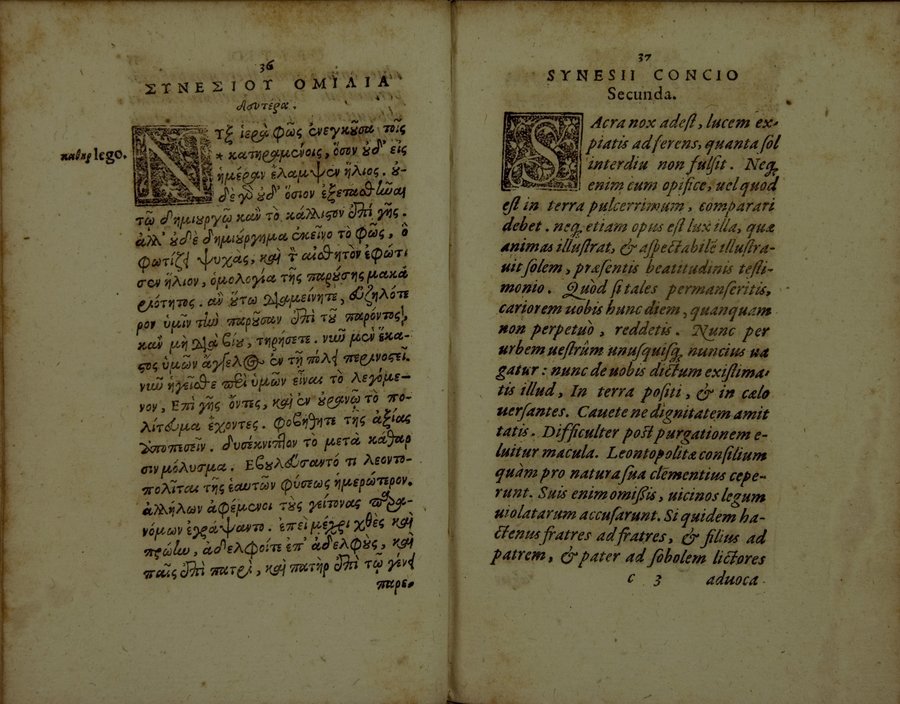 36
ΣΥΝΕΣΙΟΥ ΟΜΙΛΙΑ
Δευτέρα.
ΝΥξ ἱερὰ φῶς ἐνεγκοῦσα τοῖς
καθηρ lego.
* κατηραμένοις, ὅσον οὐδ' εἰς
ἡμέραν ἔλαμψεν ἥλιος. οὐ-
δὲ γὰρ οὐδ' ὅσιον ἐξετασθῆναι
τῷ δημιουργῷ καὶν τὸ κάλλιστον ἐπὶ γῆς.
ἀλλ' οὐδὲ δημιούργημα ἐκεῖνο τὸ φῶς, ὃ
φωτίζει ψυχὰς, καὶ τ̀ αἰσθητὸν ἐφώτι
σεν ἥλιον, ὁμολογία τῆς παρούσης μακα
ριότητος. ἂν οὕτω διαμείνητε, εὐζηλότε
ρον ὑμῖν τὴν παροῦσαν ἐπὶ τοῦ παρόντος,
κἂν μὴ διὰ βίου, τηρήσετε. νῦν μὲν ἕκα-
στος ὑμῶν ἄγγελος ἐν τῇ πόλει περινοστεῖ.
νῦν ἡγεῖσθε περὶ ὑμῶν εἶναι τὸ λεγόμε-
νον, Επὶ γῆς ὄντες, καὶ ἐν οὐρανῷ τὸ πο-
λίτευμα ἔχοντες. Φοβήθητε τῆς ἀξίας
ὑποπεσεῖν. δυσέκνιπτον τὸ μετὰ κάθαρ
σιν μόλυσμα. Εβουλεύσαντό τι λεοντο-
πολῖται τῆς ἑαυτῶν φύσεως ἡμερώτερον.
ἀλλήλων ἀφέμενοι τοὺς γείτονας παρα-
νόμων ἐγράψαντο. ἐπεὶ μέχρι χθὲς καὶ
πρώην, ἀδελφοί τε ἐπ' ἀδελφοὺς, καὶ
παῖς ἐπὶ πατρὶ, καὶ πατὴρ ἐπὶ τῷ γένει
παρε-
37
SYNESII CONCIO
Secunda.
SAcra nox adest, lucem ex-
piatis adferens, quanta sol
interdiu non fulsit. Neq;
enim cum opifice, uel quod
est in terra pulcerrimum, comparari
debet. neq; etiam opus est lux illa, quæ
animas illustrat, & aspectabilē illustra-
uit solem, præsentis beatitudinis testi-
monio. Quòd si tales permanseritis,
cariorem uobis hunc diem, quanquam
non perpetuò, reddetis. Nunc per
urbem uestrûm unusquisq; nuncius ua
gatur: nunc de uobis dictum existima-
tis illud, In terra positi, & in cælo
uersantes. Cauete ne dignitatem amit
tatis. Difficulter post purgationem e-
luitur macula. Leontopolitæ consilium
quàm pro natura sua clementius cepe-
runt. Suis enim omißis, uicinos legum
uiolatarum accusarunt. Si quidem ha-
ctenus fratres ad fratres, & filius ad
patrem, & pater ad sobolem lictores
c 3 aduoca